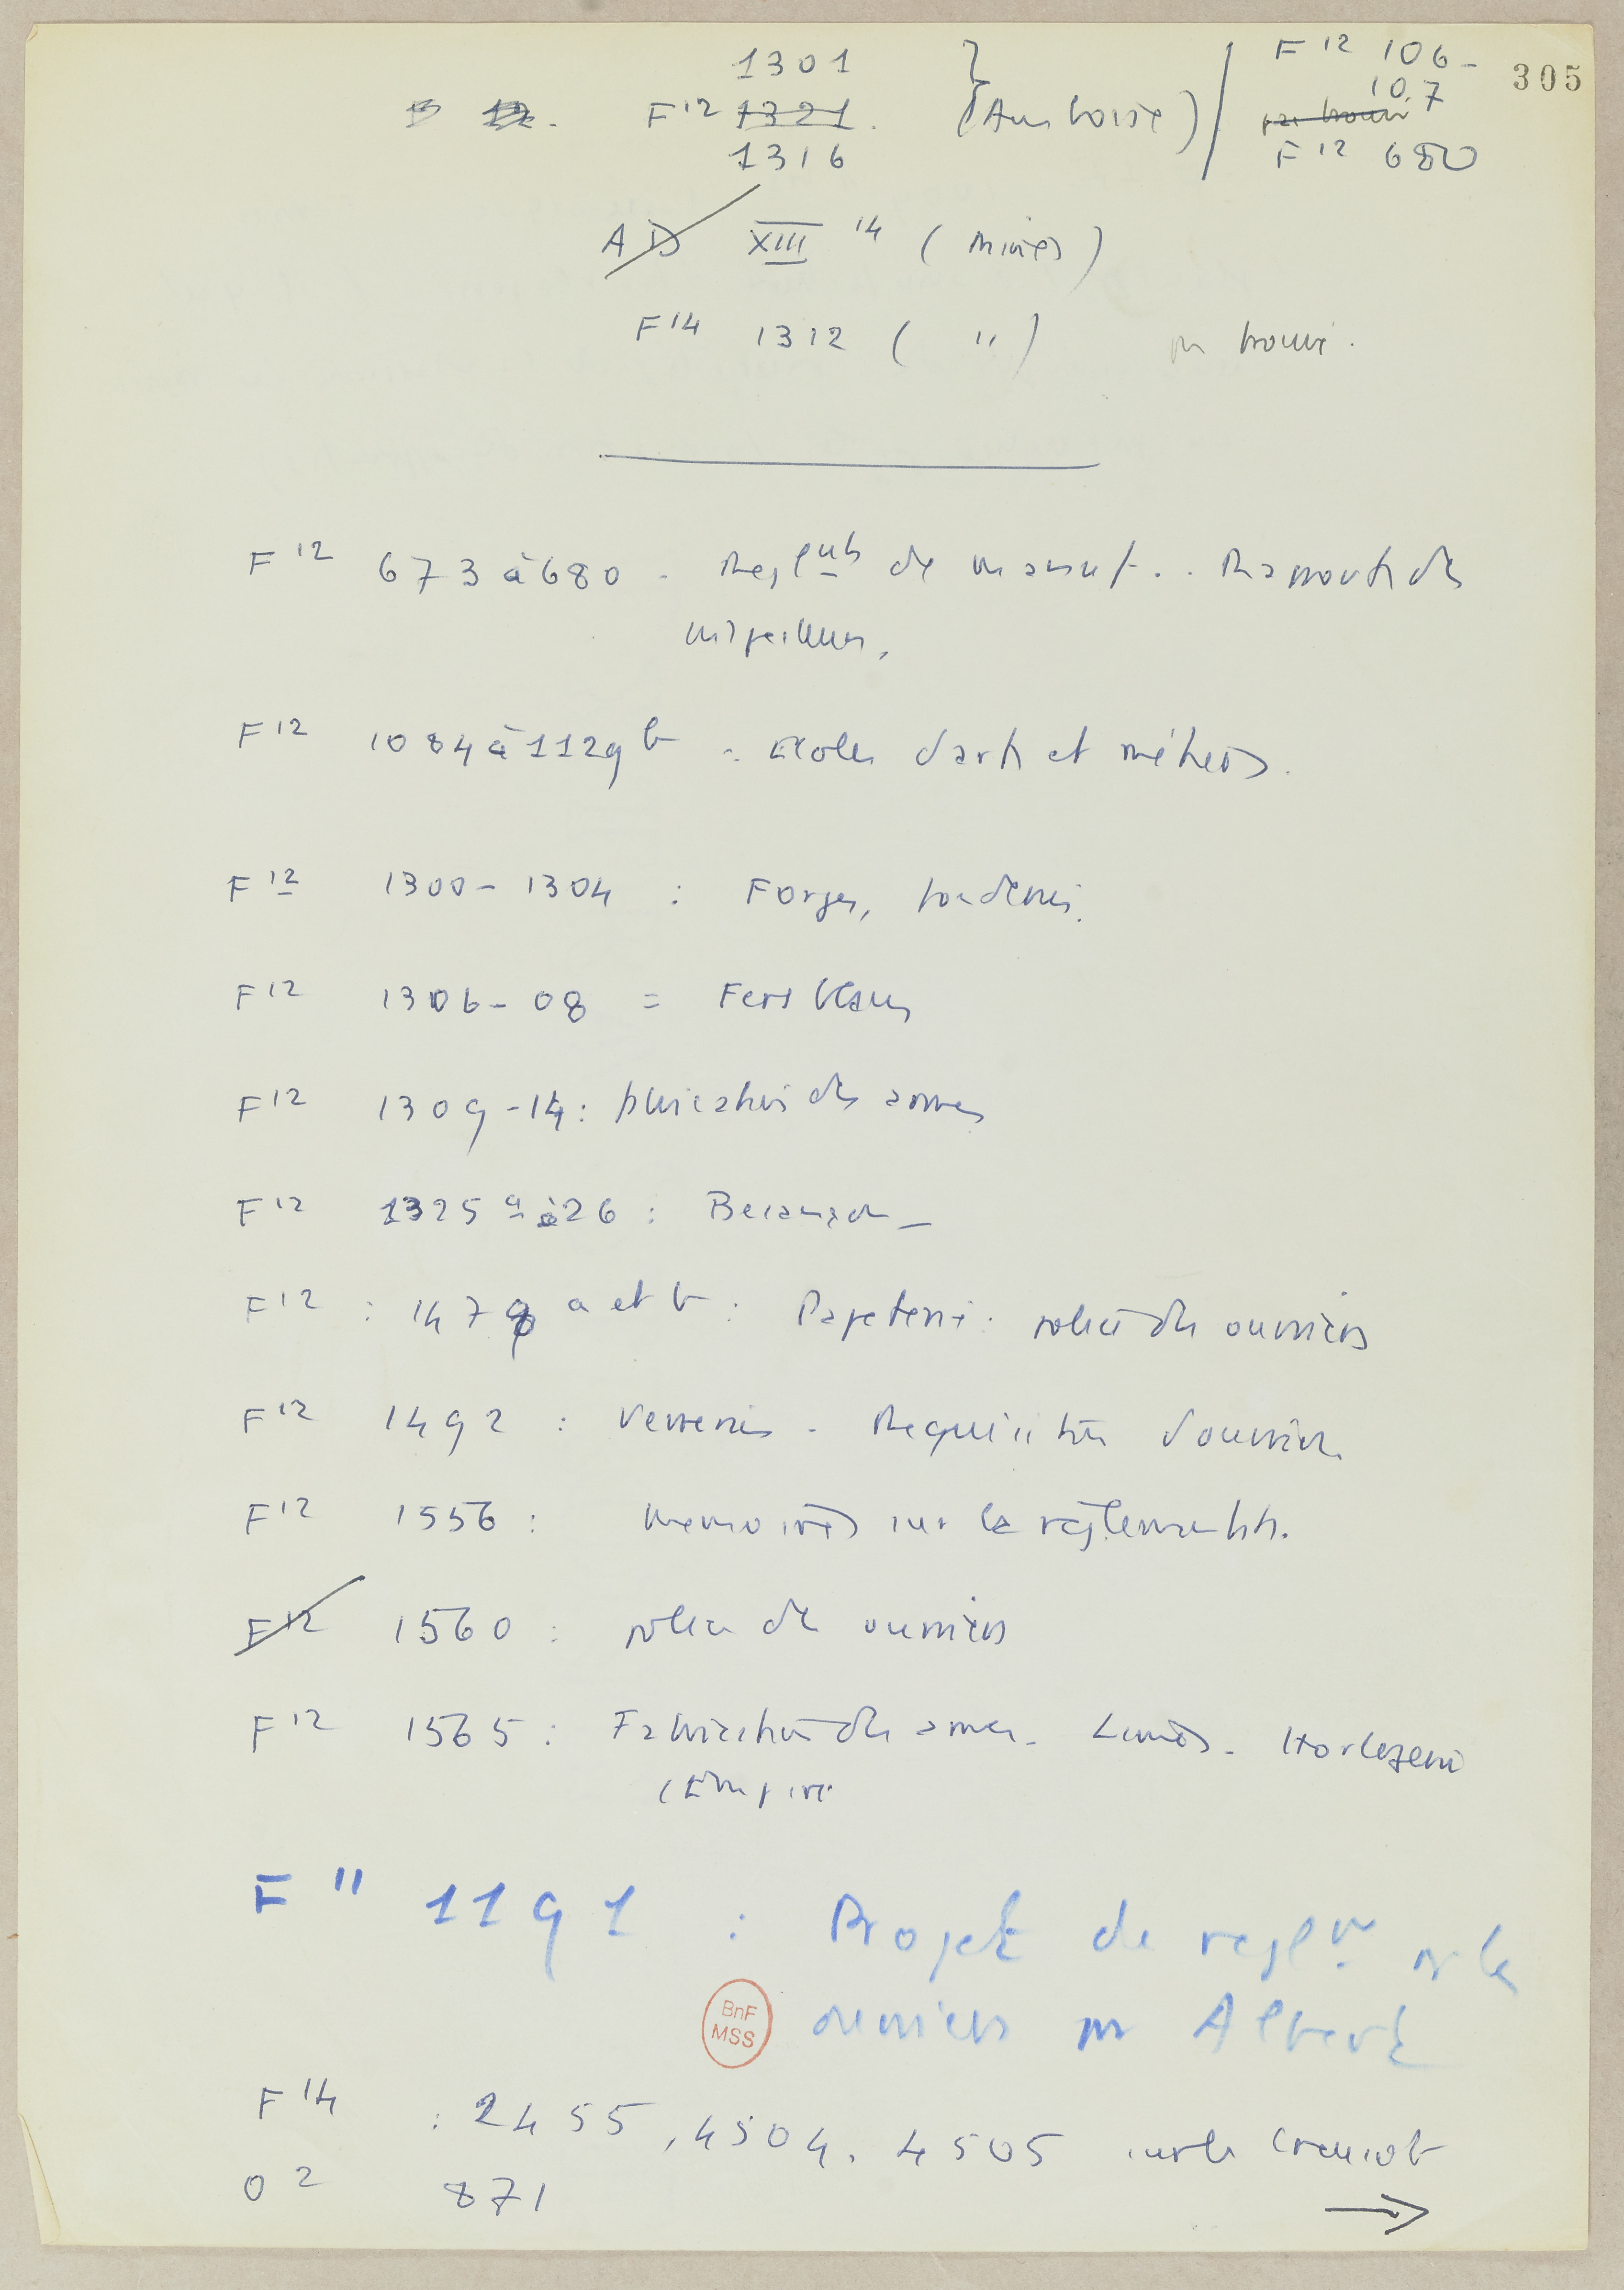 305
1301
F12 1321. (Amboise)
1316
F12 106-
107
pas trouvé
F12 680
AD XIII 14 (Mines)
F14 1312 ( " ) pas trouvé.
F12 673 à 680 - Reglnts de manuf. . Rapports des
inspecteurs.
F12 1084 à 1129 b : Ecoles d'arts et métiers.
F12 1300-1304 : Forges, fonderies.
F12 1306-08 = Fers blancs
F12 1309-14 : fabrication des armes
F12 1325 a à 26 : Besançon_
F12 : 1479 a et b : Papeterie : police des ouvriers
F12 1492 : Verreries - Requisition d'ouvriers
F12 1556 : Memoires sur la règlementation.
F12 1560 : police des ouvriers
F12 1565 : Fabrication des armes. Limes. Horlogerie
(Empire
F11 1191 : Projet de reglnt sur les
ouvriers par Albert
BnF
MSS
F14 : 2455, 4504, 4505 sur le Creusot
O2 871
→